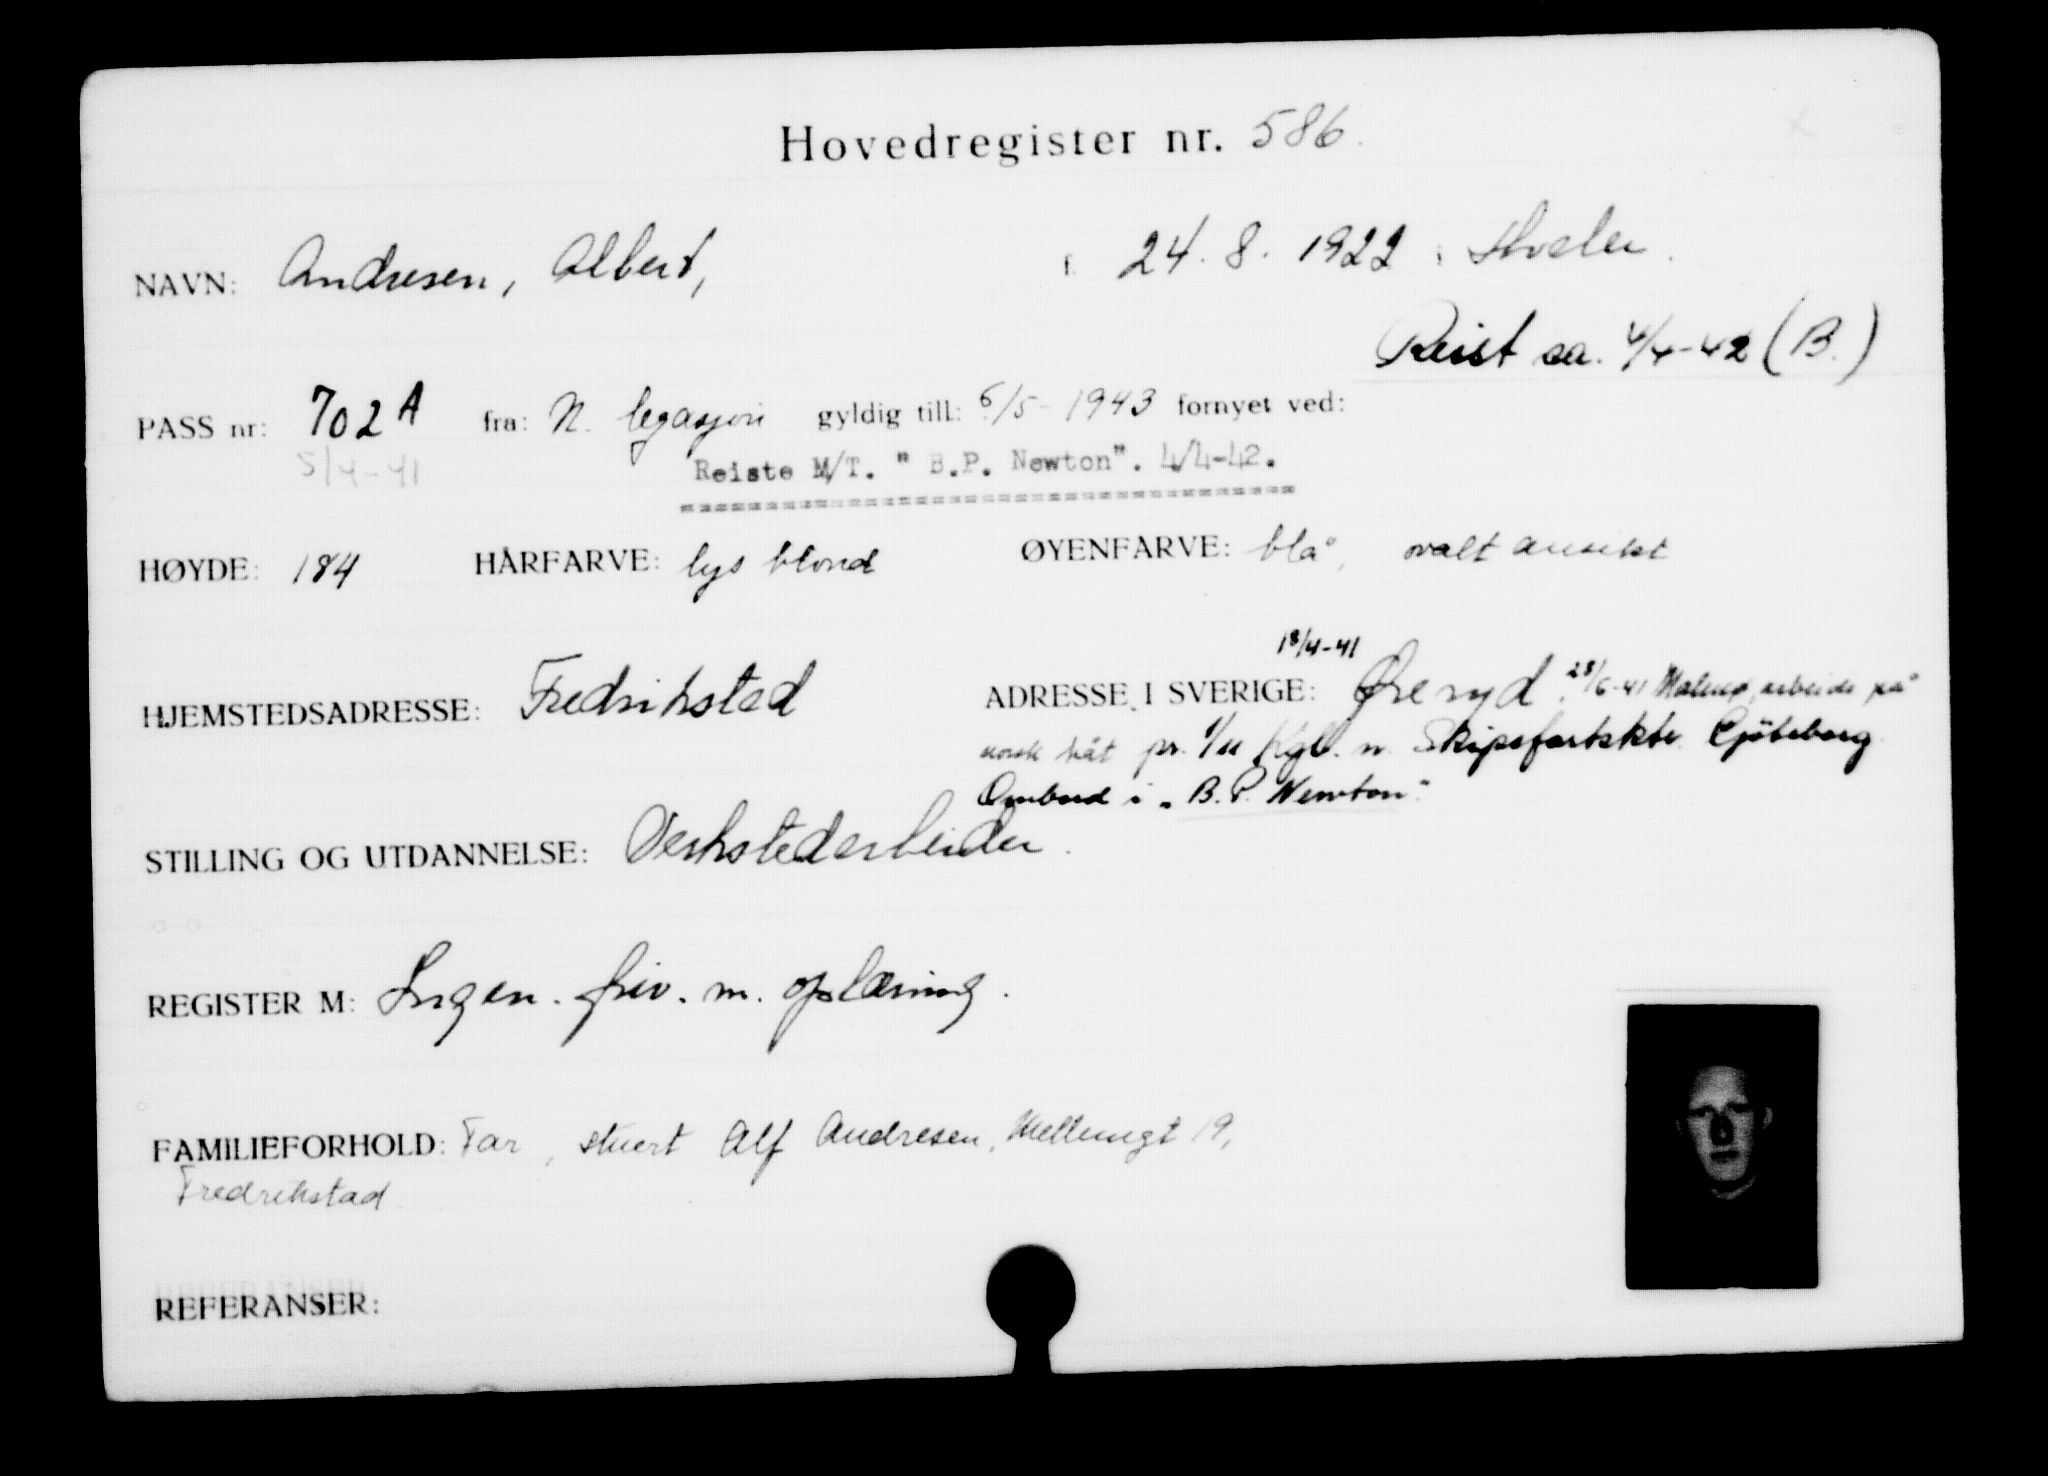 Hovedregister nr. 586.
NAVN: Andresen, Albert, f. 24.8.1922 i Hvaler.
Reist ca. 4/4-42 (B.)
PASS nr: 702A fra: N. legasjon gyldig till: 6/5-1943 fornyet ved:
5/4-41 Reiste M/T. " B.P. Newton". 4/4-42.
HØYDE: 184 HÅRFARVE: lys blond ØYENFARVE: blå, ovalt ansikt
18/4-41
HJEMSTEDSADRESSE: Fredrikstad ADRESSE I SVERIGE: Øreryd, 28/6-41 Malmø, arbeide på
norsk båt pr. 1/11 Kgl. n. Skipsfartsktr. Gjöteborg
Ombord i "B.P. Newton"
STILLING OG UTDANNELSE: Verkstedarbeider.
REGISTER M: Ingen. friv. m. oplæring.
FAMILIEFORHOLD: Far, stuert Alf Andresen, Mellemgt 19,
Fredrikstad
REFERANSER: